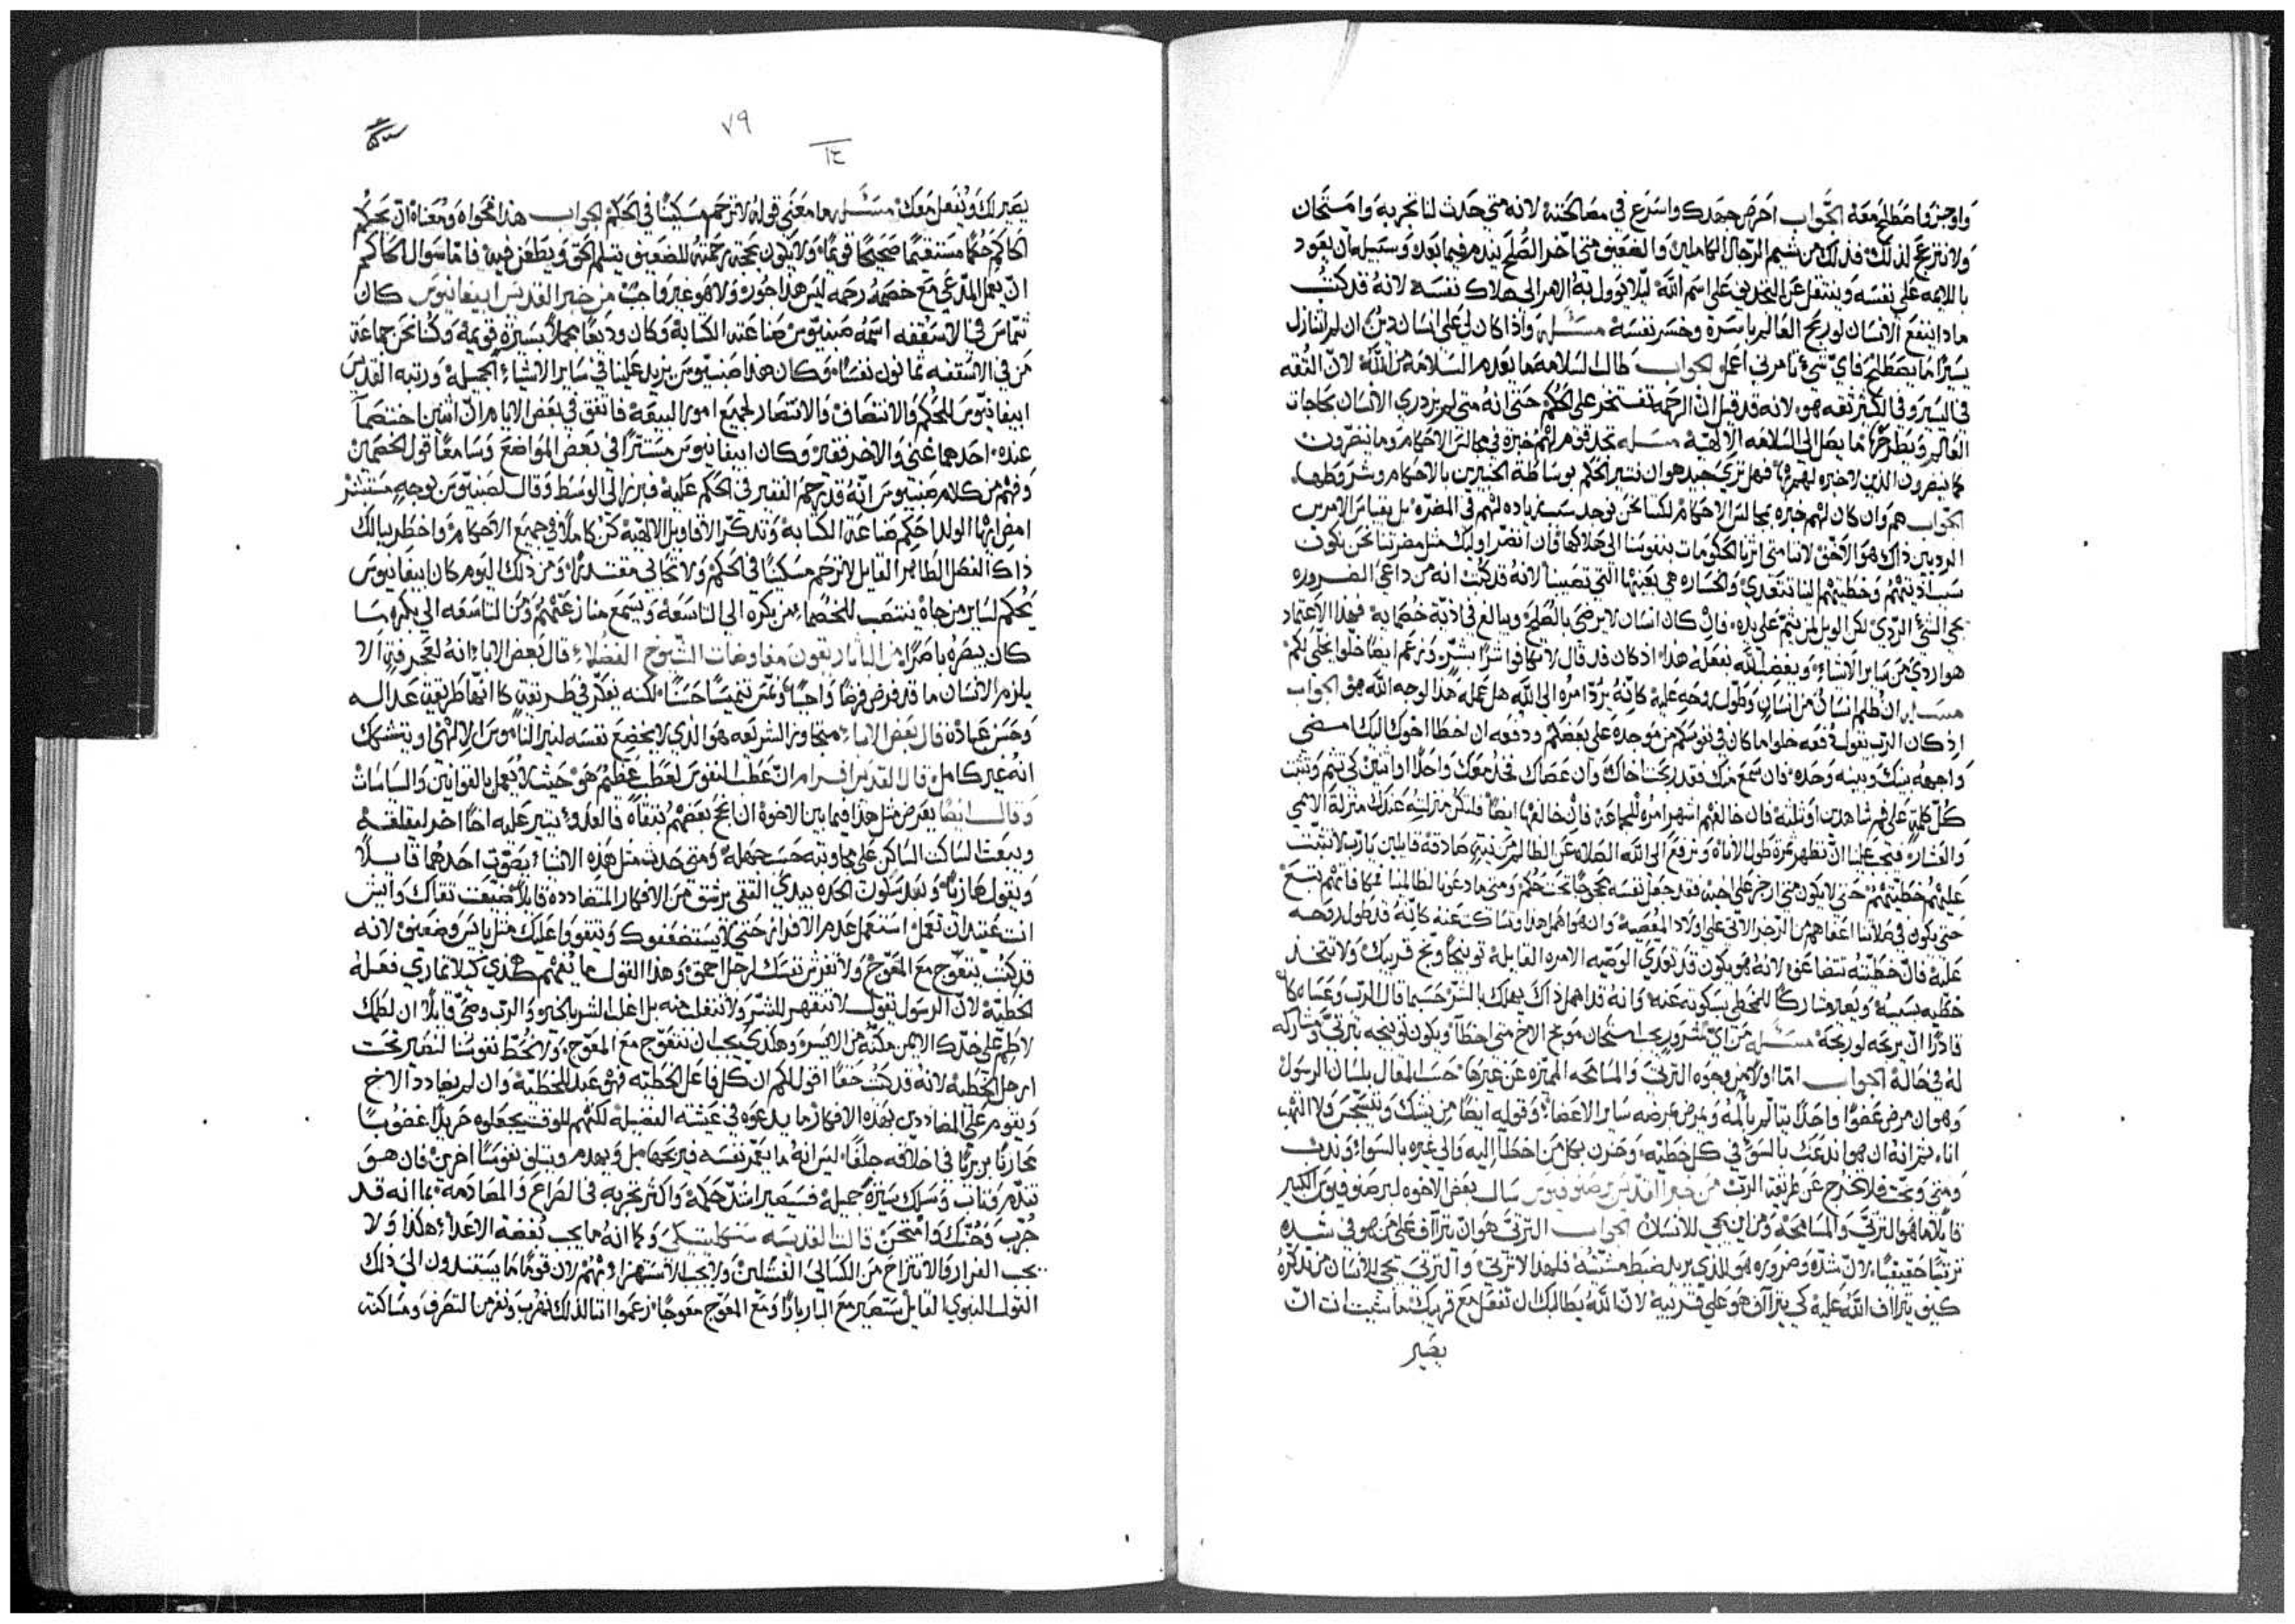 واوجز واصطلح معه الجواب احرص جهدك واسرع في مصالحته لانه متى حدث لنا تجربه وامتحان
ولا ننزعج لذلك فذلك من شيم الرجال الكاملين والضعيف متى اخر الصلح يندم فيما بعد وسبيله ان يعود
باللايمه على نفسه وينتقل عن التجديف على اسم الله ليلا يوول به الامر الى هلاك نفسه لانه قد كتب
ماذا ينفع الانسان لو ربح العالم باسره وخسر نفسه مسئله واذا كان لي على انسان دين ان لم اتنازل
يسيرا ما يصطلح فاي شي تامرني اعمل الجواب طالب السلامه ما يعدم السلامه من الله لان الثقه
في اليسير وفي الكثير ثقه هو لانه قد قيل ان الرحمه تفتخر على الحكم حتى انه متى لم يزدري الانسان بحاجات
العالم ويطرحها ما يصل الى السلامه الالهيه مسله نجد قوم لهم خبره في مجالس الاحكام وما ينضرون
كما ينضرون الذين لا خبره لهم بها فهل ترى جيد هو ان نثير الحكم بوساطة الخبيرين بالاحكام وشروطها
الجواب هم وان كان لهم خبره بمجالس الاحكام لكنا نحن نوجد سبب زياده لهم في المضره بل بقياس الامرين
الرديين ذاك هو الاخف لاننا متى اثرنا الحكومات بنفوسنا الى هلاكها فان انضر اوليك مثل مضرتنا نحن نكون
سبب اذيتهم وخطيتهم لنا تتعدى والخساره هي بعينها التي تصيبنا لانه قد كتب انه من داعي الضروره
يجي الشي الردي لكن الويل لمن يتم على يده فان كان انسان لا يرضى بالصلح ويبالغ في اذية خصمايه فهذا الاعتماد
هو اردى من ساير الاشياء ويغضب الله بفعله هذا اذ كان قد قال لا تكافوا شرا بشر وزعم ايضا خلوا يخلى لكم
مسله ان ظلم انسان من انسان وطول روحه عليه كانه يرد امره الى الله هل عمله هذا لوجه الله هو الجواب
اذ كان الرب يقول دفعه خلوا ما كان في نفوسكم من موجده على بعضكم ودفعه ان اخطا اخوك اليك امضي
واجهه بينك وبينه وحده فان سمع منك فقد ربحت اخاك وان عصاك فخذ معك واحدا او اثنين كي تتم وتثبت
كل كلمه على فم شاهدين او ثلثه فان خالفهم اشهر امره للجماعه فان خالفها ايضا فلتكن منزلته عندك منزلة الاممي
والعشار فيجب علينا ان نظهر ثمرة طول الاناه ونرفع الى الله الصلاه عن الظالم من نية صادقه قايلين يارب لا تثبت
عليهم خطيتهم حتى لا يكون متى ارجز على اخيه فقد جعل نفسه محجوجا تحت حكم ومتى ما دعونا لظالمنا
حتى يكون في صلاتنا اعفاهم من الزجر الاتي على اولاد المعصيه وان هو اهمل هذا وتساكت عنه كانه قد طول روحه
عليه فان خطيته تتضاعف لانه هو يكون قد تعدى الوصيه الامره القايله توبيخا وبخ قريبك ولا تتخذ
خطيه بسببه ويصير مشاركا للمخطي بسكوته عنه وانه قد اهمل ذاك يهلك بالشر حسبما قال الرب وعساه كان
قادرا ان يربحه لو ربحه مسله من اي شرور يجب استحان موبخ الاخ متى اخطا ويكون توبيخه بترثي ومشاركه
له في حاله الجواب اما اولا فمن وجوه الترثي والمسامحه المميزه عن غيرها حسب المقال بلسان الرسول
وهو ان مرض عضوا واحدا يتالم بالمه ويمرض بمرضه ساير الاعضاء وقوله ايضا من يشك ويتسجس ولا التهب
انا ثم انه ان هو اندعت بالسوء في كل خطيه وحزن بكل من اخطا اليه والى غيره بالسواء وندب
ومتى وبخ فلا يخرج عن طريقة الرب من خبر القديس برصنوفيوس سال بعض الاخوه لبرصنوفيوس الكبير
قايلا ما هو الترثي والمسامحه ومن اين يجي للانسان الجواب الترثي هو ان تتراف على من هو في شده
ترثيا حقيقيا لان شده وضروره هو للذي يريد ضبط مشيته فلهذا لا ترثي والترثي يجي للانسان من تذكره
كيف يتراف الله عليه كي يتراف هو على قريبه لان الله يطالبك ان تفعل مع قريبك ما شيت انت ان
يصير
٧٩
يصير لك ويفعل معك مسئله ما معنى قوله لا ترحم مسكينا في الحكم الجواب هذا فحواه ومعناه ان يحكم
الحاكم حكما مستقيما صحيحا قويما ولا يكون بحجة رحمته للضعيف يثلم الحق ويطعن فيه فاما سوال الحاكم
ان يعمل المدعي مع خصمه رحمه ليس هذا جور ولا هو غير واجب من خبر القديس ابيفانيوس كان
شماس في الاسقفيه اسمه صبنيوس صناعته الكتابه وكان وديعا مجملا بسيره قويمه وكنا نحن جماعة
من في الاسقفيه ثمانون نفسا وكان هذا صبنيوس يزيد علينا في ساير الاشياء الجميله ورتبه القديس
ابيفانيوس للحكم والانتصاف والانتصار لجميع امور البيعه فاتفق في بعض الايام ان اثنين اختصما
عنده احدهما غني والاخر فقير وكان ابيفانيوس مستترا في بعض المواضع وسامعا قول الخصمين
وفهم من كلام صبنيوس انه قد رحم الفقير في الحكم عليه فبرز الى الوسط وقال لصبنيوس بوجه مستبشر
امض ايها الولد احكم صناعة الكتابه وتذكر الاقاويل الالهيه كن كاملا في جميع الاحكام واخطر ببالك
ذاك الفصل الطاهر القايل لا ترحم مسكينا في الحكم ولا تحابي مقتدرا ومن ذلك اليوم كان ابيفانيوس
يحكم لساير من جاه ينتصب للخصما من بكره الى التاسعه ويسمع منازعتهم ومن التاسعه الى بكره ما
كان يبصره باصرا من الباب الاربعون مفاوضات الشيوخ الفضلاء قال بعض الابا انه لعجز فيه الا
يلزم الانسان ما قد فرض فرضا واجبا وتمم تتميما حسنا لكنه يفكر في طريقته كانها طريقة عداله
وحسن عباده قال بعض الابا متجاوز الشريعه هو الذي لا يخضع نفسه لنير الناموس الالهي او يتشكك
انه غير كامل قال القديس افرام ان عطب النفوس لعطب عظيم هو حيث لا يعمل بالقوانين والسياسات
وقال ايضا يعرض مثل هذا فيما بين الاخوة ان نجح بعضهم بنقاه فالعدو يثير عليه اخا اخر ليقلقه
ويبعث الساكت الساكن على مجاوبته حسب جهله ومتى حدث مثل هذه الاشياء يصوت احدهما قايلا
ويقول هازيا وبعد سكوت الحرد يبدي التقي يرشق من الافكار المتضادده قايلا ضيعت تقاك وايش
انت عتيد ان تعمل استعمل عدم الافراز حتى لا يستضعفوك ويتقووا عليك مثل يايس وضعيف لانه
قد كتب يتعوج مع المعوج ولا تفرش نفسك لرجل احمق وهذا القول ما يفهم هكذي كيلا تماري فعله
الخطيه لان الرسول يقول لا تنقهر للشر ولا تنغلب منه بل اغلب الشر بالخير والرب وصى قايلا ان لطمك
لاطم على خدك الايمن مكنه من الايسر وهكذى يجب ان نتعوج مع المعوج ولا نحط نفوسنا لتصير تحت
ارجل الخطيه لانه قد كتب حقا اقول لكم ان كل فاعل الخطيه فهو عبد للخطيه وان لم يعادد الاخ
ويقوم على المضاددين بهذه الافكار ما يدعوه في عيشته الفضيله لكنهم للوقت يجعلوه حربلا غضوبا
محاربا بربريا في اخلاقه جلفا ليس انه ما يقهر نفسه فيربحها بل ويهدم ويتلف نفوسا اخرين فان هو
تندم وتاب وسلك سيرة جميله فسيصير اشد حكمه واكثر تجربه في الصراع والمصادمه بما انه قد
جرب وحنك وامتحن قالت القديسه سنكليتيكي وكما انه ما يجب بغضة الاعداء هكذا ولا
يجب الفرار والانتزاح من الكسالى الفشلين ولا يجب الاستهزاء بهم لان قوما ما يستندون الى ذلك
القول النبوي القايل ستصير مع البار بارا ومع المعوج معوجا زعموا اننا لذلك نهرب ونفر من التصرف ومساكنة